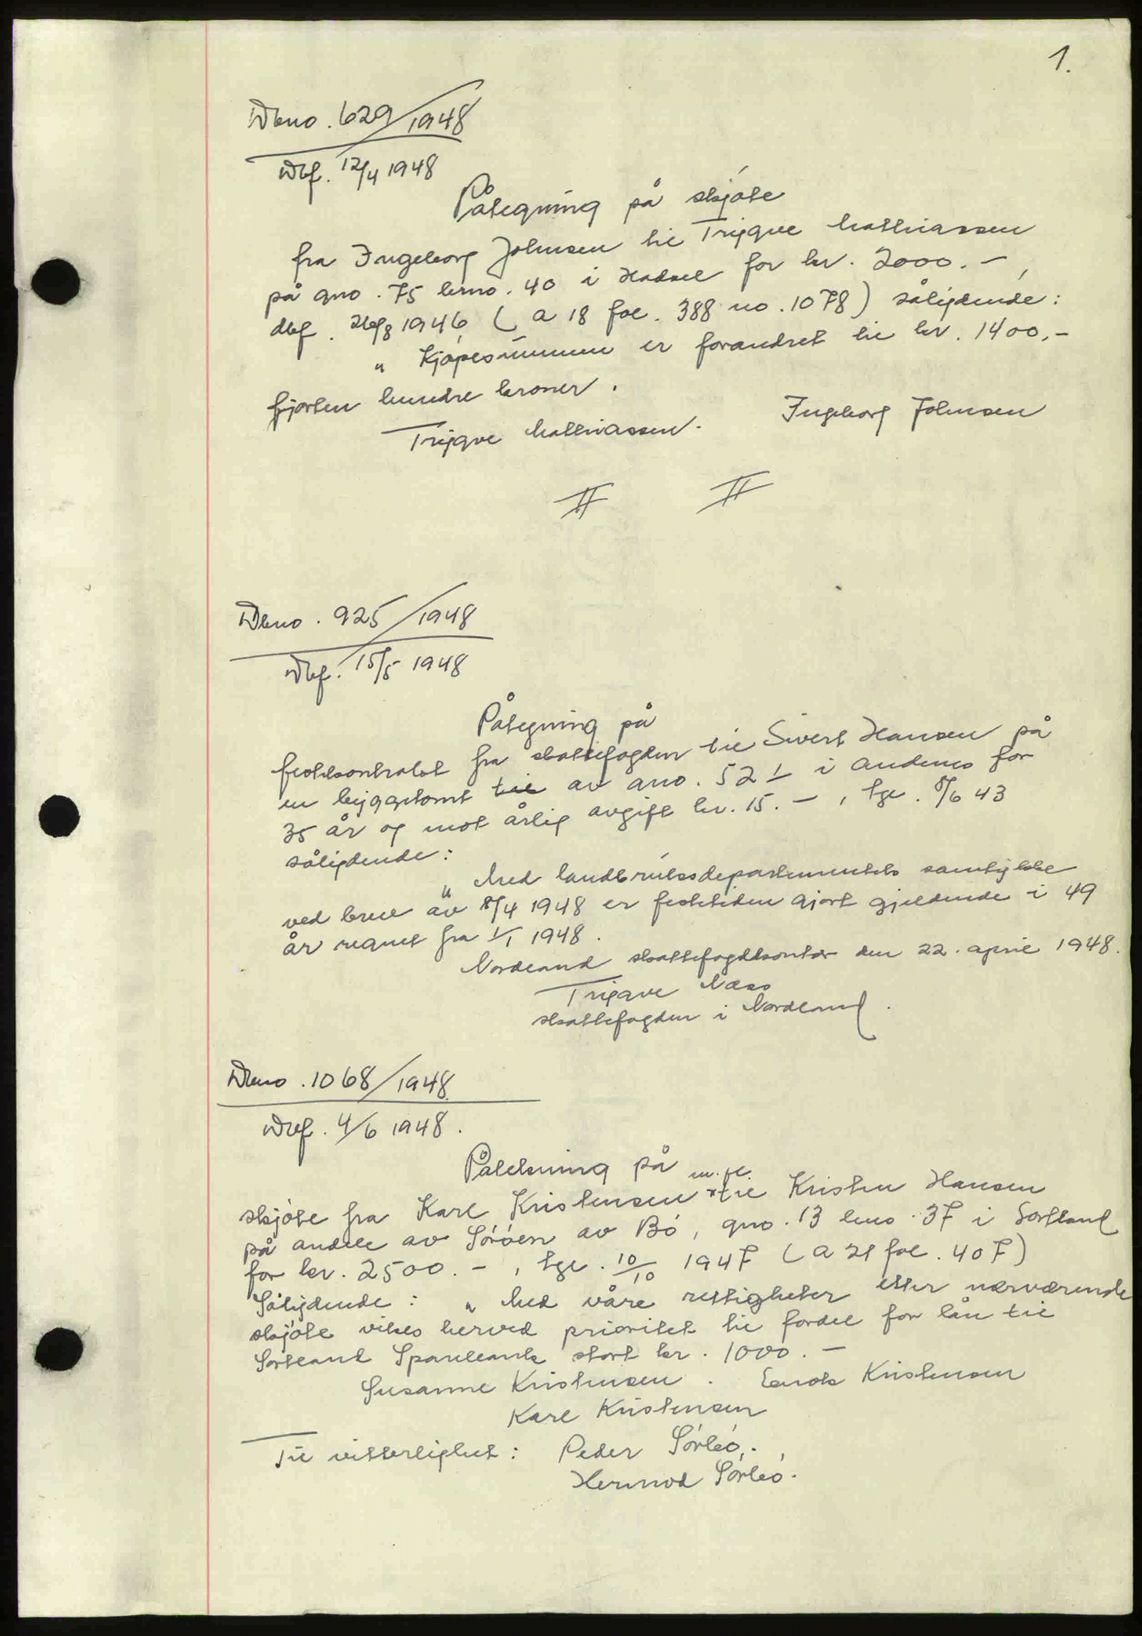 1.
Dbno. 629/1948
Dbf. 12/4 1948
Påtegning på skjöte
fra Ingeborg Johnsen til Trygve Mathiassen
på gno. 75 brno. 40 i Hadsel for kr. 2000.-,
dbf. 26/8 1946 (A 18 fol. 388 no. 1078) sålydende:
" Kjöpesummen er forandret til kr. 1400.-
fjorten hundre kroner.
Ingeborg Johnsen
Trygve Mathiassen.
Dbno. 925/1948
Dbf. 15/5 1948
Påtegning på
festekontrakt fra skattefogden til Sivert Hansen på
en byggetomt til av gno. 52 1 i Andenes for
35 år og mot årlig avgift kr. 15.-, tgl. 8/6 43
sålydende:
" Med landbruksdepartementets samtykke
ved brev av 8/4 1948 er festetiden gjort gjeldende i 49
år regnet fra 1/1 1948.
Nordland skattefogdkontor den 22. april 1948.
Trygve Næss
skattefogden i Nordland.
Dbno. 1068/1948
Dbf. 4/6 1948.
Påtekning på
skjöte fra Karl Kristensen m. fl. til Kristen Hansen
på andele av Söröen av Bö, gno. 13 bno. 37 i Sortland
for kr. 2500.-, tgl. 10/10 1947 (A 21 fol. 407)
Sålydende: " Med våre rettigheter etter nærværende
skjöte vikes herved prioritet til fordel for lån til
Sortland Sparebank stort kr. 1000.-
Susanne Kristensen. Enok Kristensen
Karl Kristensen
Til vitterlighet: Peder Sörleö,.
Hermod Sörleö.